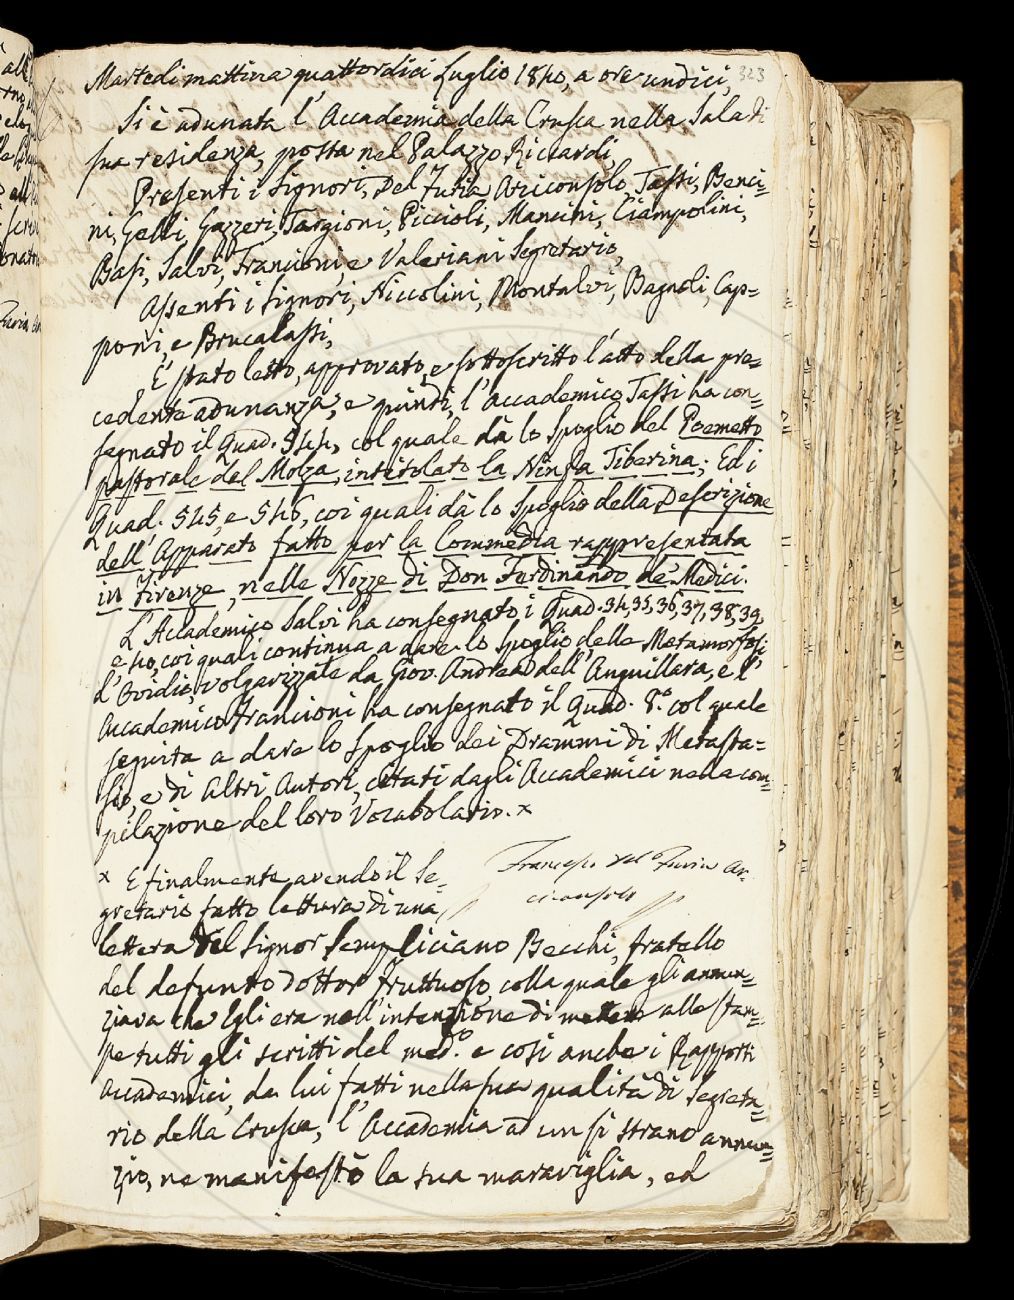 323
Martedi mattina quattordici Luglio 1840, a ore undici,
Si è adunata l'Accademia della Crusca nella Sala di
sua residenza, posta nel Palazzo Riccardi,
Presenti i Signori, Del Furia Arciconsolo, Tassi, Benci=
ni, Gelli, Gazzeri, Targioni, Piccioli, Mancini, Ciampolini,
Basi, Salvi, Francioni, e Valeriani Segretario,
Assenti i Signori, Niccolini, Montalvi, Bagnoli, Cap=
poni, e Brucalassi,
E' stato letto, approvato, e sottoscritto l'atto della pre=
cedente adunanza, e quindi, l'Accademico Tassi ha con=
segnato il Quad. 544, col quale dà lo spoglio del Poemetto
pastorale del Molza, intitolato la Ninfa Tiberina; Ed i
Quad. 545, e 546, coi quali dà lo spoglio della Descrizione
dell'Apparato fatto per la Commedia rappresentata
in Firenze, nelle Nozze di Don Ferdinando de' Medici.
L'Accademico Salvi ha consegnato i Quad. 34, 35, 36, 37, 38, 39,
e 40, coi quali continua a dare lo spoglio delle Metamorfosi
d'Ovidio, volgarizzate da Giov. Andrea dell'Anguillara, e l'
Accademico Francioni ha consegnato il Quad. 8.° col quale
seguita a dare lo spoglio dei Drammi di Metasta=
sio, e di Altri Autori, citati dagli Accademici nella com=
pilazione del loro Vocabolario. x
Francesco del Furia Ar=
ciconsolo
x E finalmente avendo il Se=
gretario fatto lettura di una
lettera del Signor Sempliciano Becchi, fratello
del defunto dottor Fruttuoso, colla quale gli annun=
ziava che Egli era nell'intenzione di mettere alle stam=
pe tutti gli scritti del med.° e così anche i Rapporti
Accademici, da lui fatti nella sua qualità di Segreta=
rio della Crusca, l'Accademia ad un sì strano annun=
zio, ne manifestò la sua maraviglia, ed